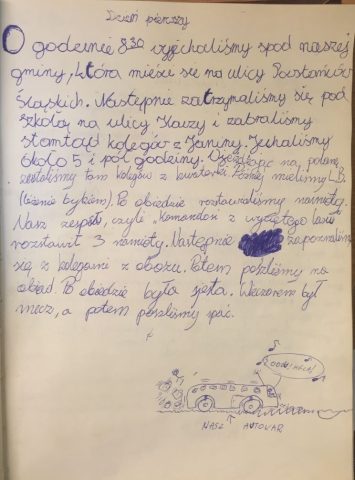 Dzień pierwszy
O godzinie 8³⁰ wyjechaliśmy spod naszej
gminy, która mieści się na ulicy Powstańców
Śląskich. Następnie zatrzymaliśmy się pod
szkołą na ulicy i zabraliśmy
stamtąd kolegów z Janiny. Jechaliśmy
około 5 i pół godziny. na polanę
zastaliśmy tam kolegów z kwaterki. Później mieliśmy L.B.
(leżenie bykiem). Po obiedzie rozstawialiśmy namioty.
Nasz zespół, czyli "Komandosi z wyciętego lasu"
rozstawił 3 namioty. Następnie zapoznaliśmy
się z kolegami z obozu. Potem poszliśmy na
obiad. Po obiedzie była sjesta. Wieczorem był
mecz, a potem poszliśmy spać.
NASZ AUTOKAR